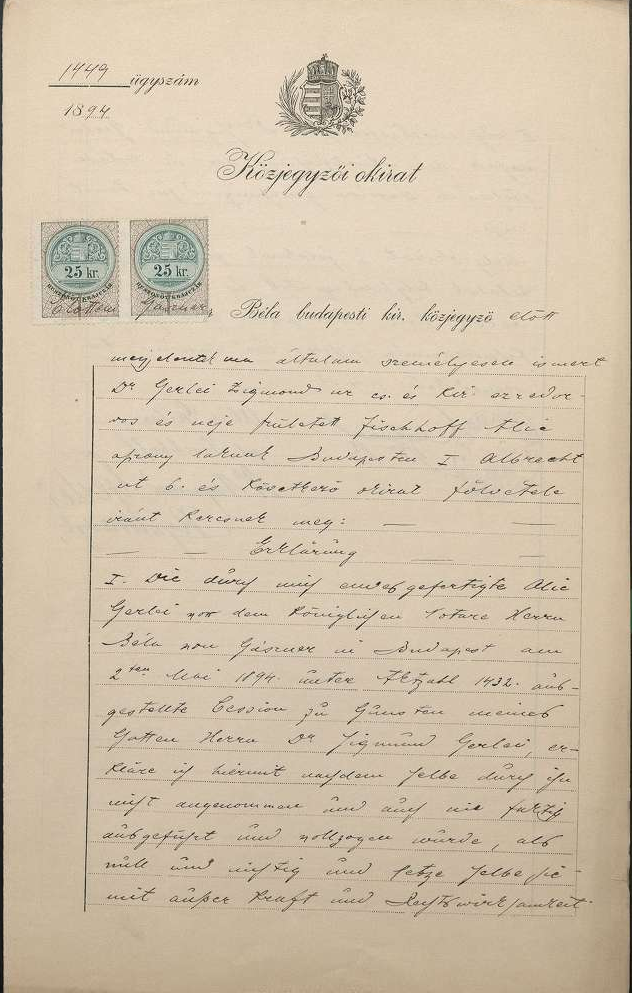 1449 ügyszám
1894
Közjegyzői okirat
25 kr. 25 kr.
HUSZONÖT KRAJCZÁR HUSZONÖT KRAJCZÁR
Előttem Gászner
Béla budapesti kir. közjegyző előtt
megjelentek ma általam személyesen ismert
Dr Gerlei Zigmond ur cs. és kir. ezredor-
vos és neje született Fischhoff Alic
asszony laknak Budapesten I Albrecht
ut 6. és következő okirat fölvétele
iránt keresnek meg: — —
— — Erklärung — —
I. Die durch mich endesgefertigte Alic
Gerlei von dem Königlichen Notare Herrn
Béla von Gászner in Budapest am
2ten Mai 1894. unter Aktzahl 1432. aus-
gestellte Cession zu Gunsten meines
Gatten Herrn Dr Sigmund Gerlei, er-
kläre ich hiermit nachdem selbe durch ihn
nicht angenommen und auch nie
ausgeführt und vollzogen wurde, als
null und nichtig und setze selbe hie-
mit außer Kraft und Rechtswirksamkeit.